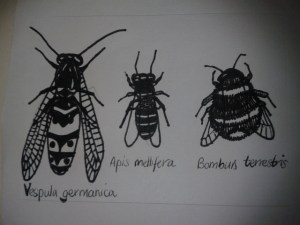 Apis mellifera
Bombus terrestris
Vespula germanica